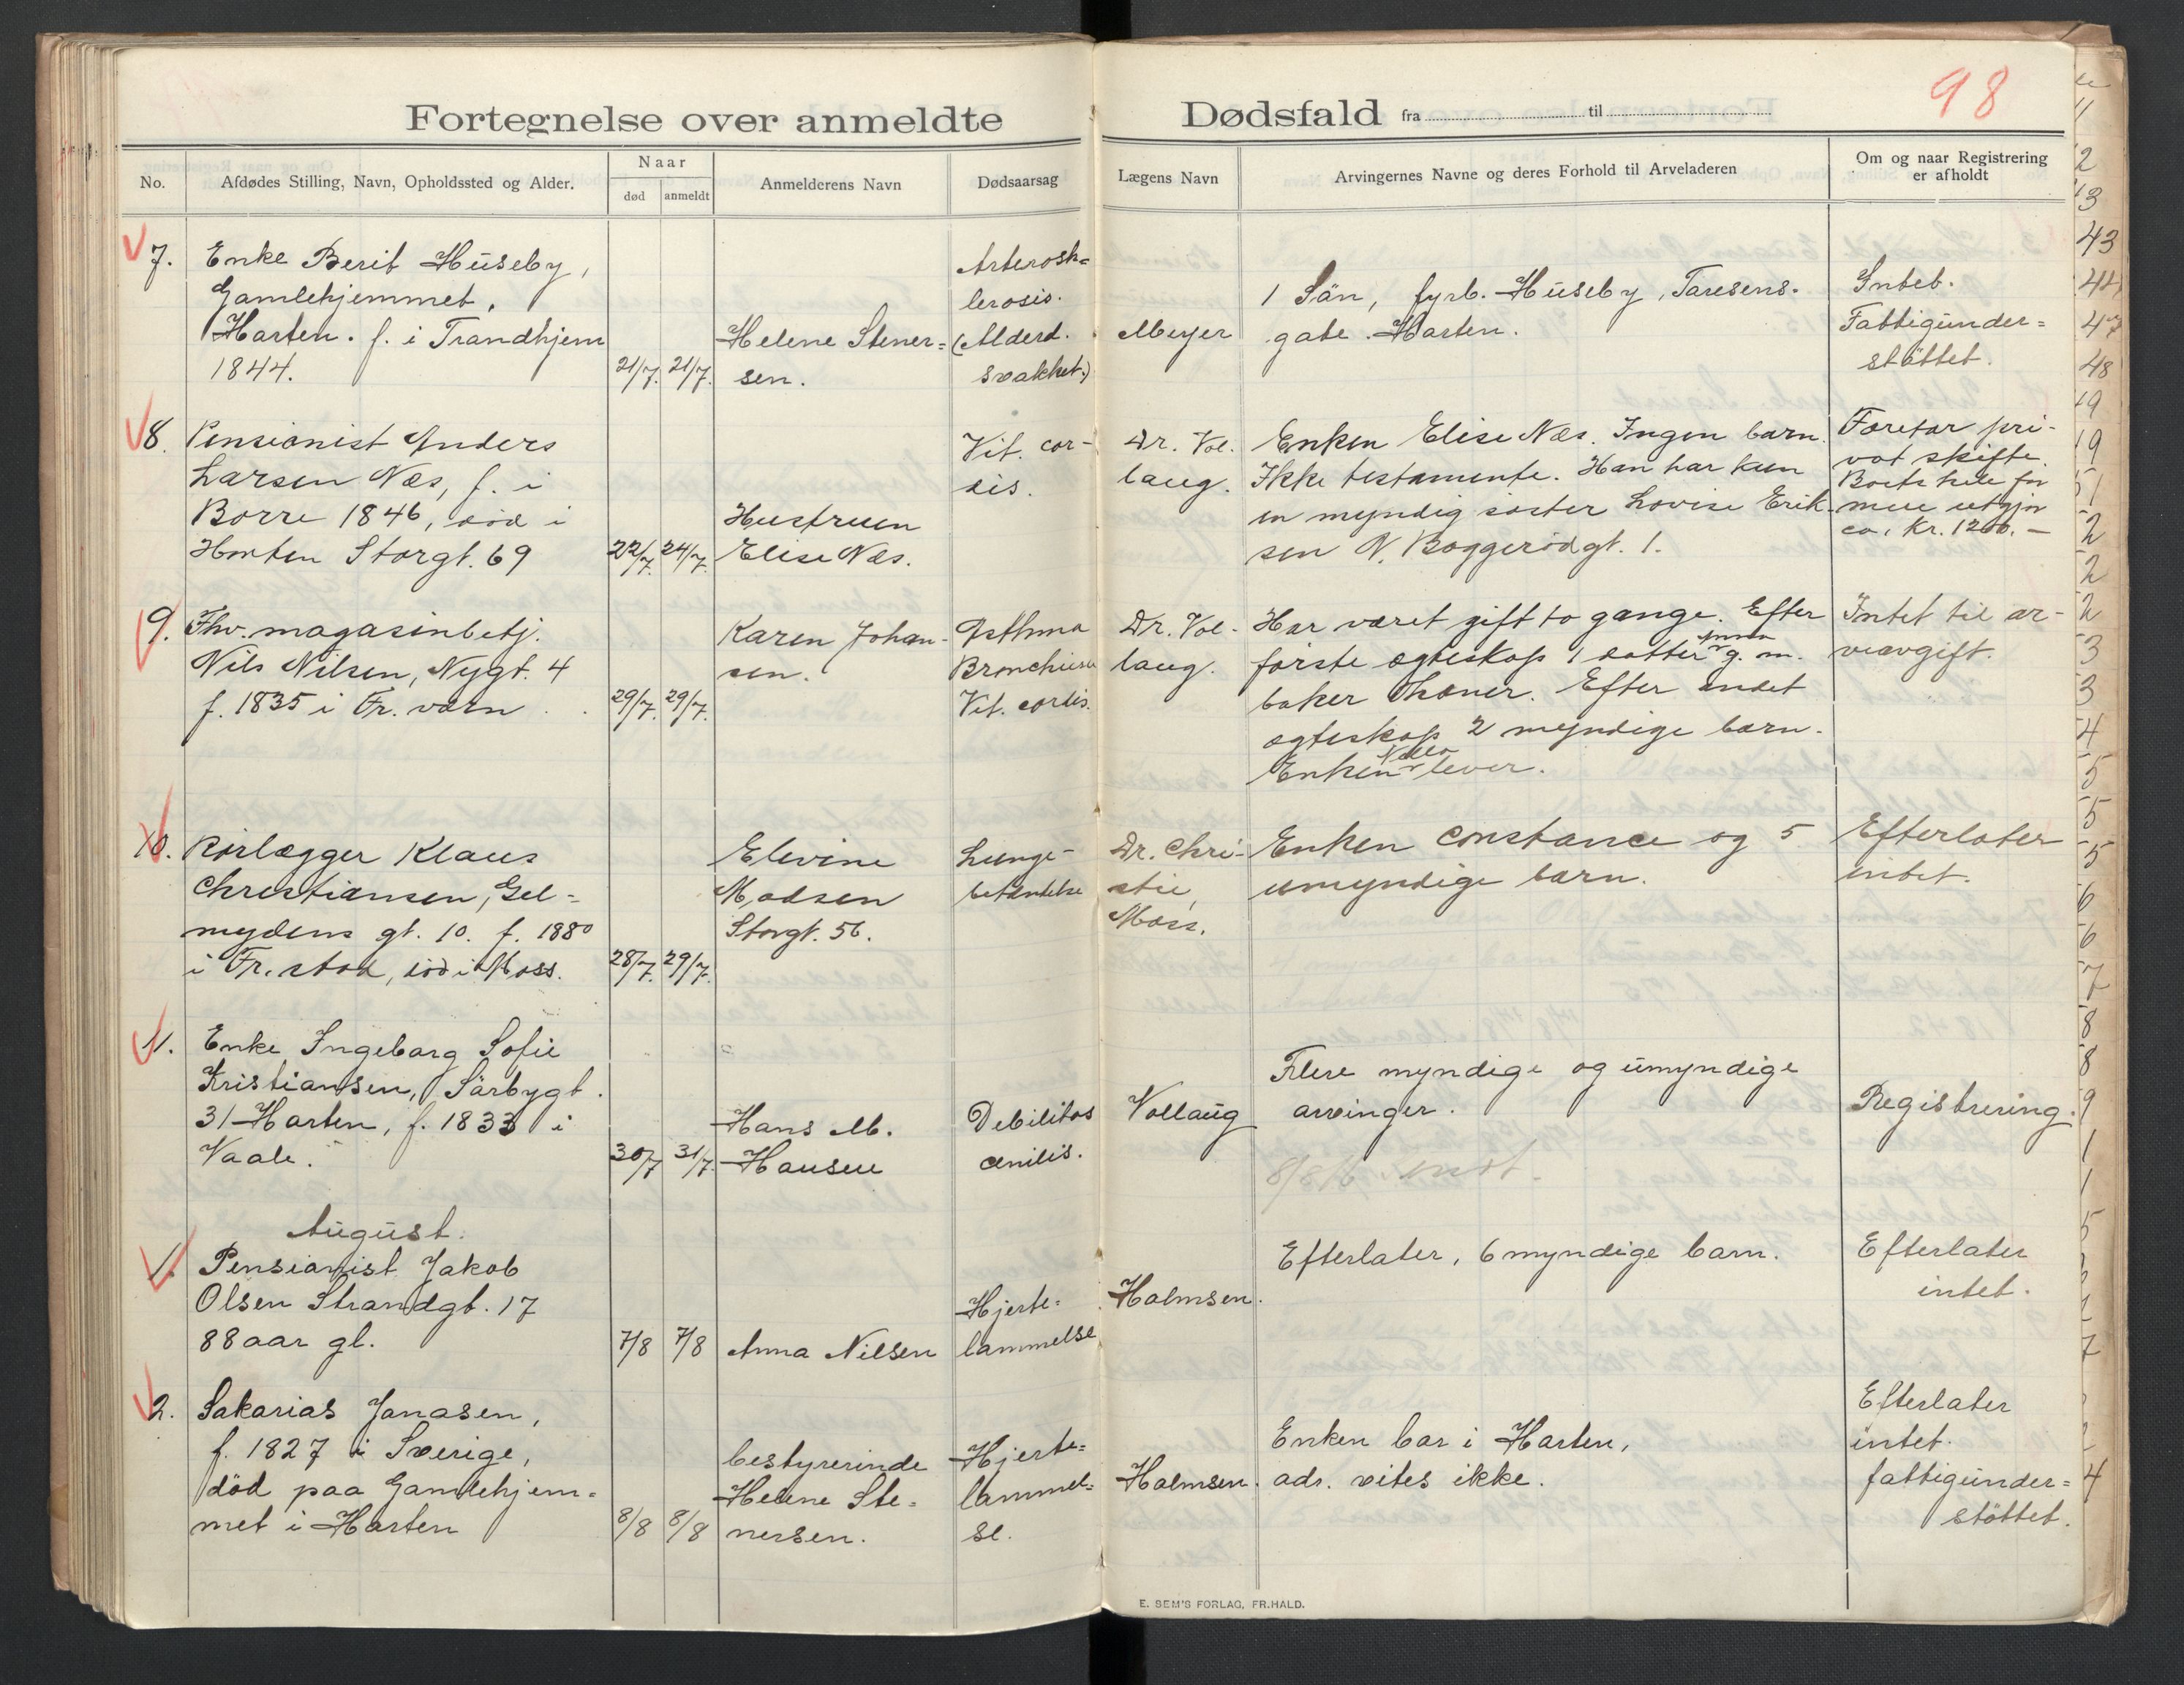 98
Fortegnelse over anmeldte Dødsfald fra til
No.
Afdødes Stilling, Navn, Opholdssted og Alder.
Naar
død
anmeldt
Anmelderens Navn
Dødsaarsag
Lægens Navn
Arvingernes Navne og deres Forhold til Arveladeren
Om og naar Registrering
er afholdt
7.
Enke Berit Huseby,
Gamlehjemmet,
Horten. f. i Trondhjem
1844.
21/7.
21/7.
Helene Stener=
sen.
Arterosk=
lerosis.
(Alderd.
svakhet.)
Meyer
1 Sön, fyrb. Huseby, Toresens.
gate. Horten.
Intet.
Fattigunder=
stöttet.
8.
Pensionist Anders
Larsen Næs, f. i
Borre 1846, död i
Horten Storgt. 69
22/7.
24/7.
Hustruen
Elise Næs.
Vit. cor-
dis.
Dr. Vol-
laug.
Enken Elise Næs. Ingen barn.
Ikke testamente. Han har kun
en myndig söster Lovise Erik-
sen N. Baggerödgt. 1.
Foretar pri-
vat skifte.
Boets hele for
mue utgjör
ca. Kr. 1200.-
9.
Fhv. magasinbetj.
Nils Nilsen, Nygt. 4
f. 1835 i Fr. værn
29/7.
29/7.
Karen Johan-
sen.
Asthma
Bronchiale
Vit. cordis.
Dr. Vol-
laug.
Har været gift to gange. Efter
förste egteskap 1 datter g. m.
baker Thoner. Efter andet
egteskap 2 myndige barn.
Enken lever.
Intet til ar-
veavgift.
10.
Rörlægger Klaus
Christiansen, Gel=
mydens gt. 10. f. 1880
i Fr. stad, död i Moss.
28/7.
29/7.
Elevine
Madsen
Storgt. 56.
Lunge-
betændelse
Dr. Chri-
stie,
Moss.
Enken Constance og 5
umyndige barn.
Efterlater
intet.
11.
Enke Ingeborg Sofie
Kristiansen, Sörbygt.
31 Horten, f. 1833 i
Vaale.
30/7
31/7.
Hans M.
Hansen
Debilitas
cenilis.
Vollaug
Flere myndige og umyndige
arvinger.
Registrering.
August.
1.
Pensionist Jakob
Olsen Strandgt. 17
88 aar gl.
7/8
7/8
Anna Nilsen
Hjerte=
lammelse
Holmsen.
Efterlater, 6 myndige barn.
Efterlater
intet.
2.
Sakarias Jonasen,
f. 1827 i Sverige,
död paa Gamlehjem=
met i Horten
8/8
8/8
bestyrerinde
Helene Ste=
nersen.
Hjerte=
lammel=
se.
Holmsen.
Enken bor i Horten,
adr. vites ikke.
Efterlater
intet.
fattigunder=
stöttet.
E. SEM'S FORLAG, FR.HALD.